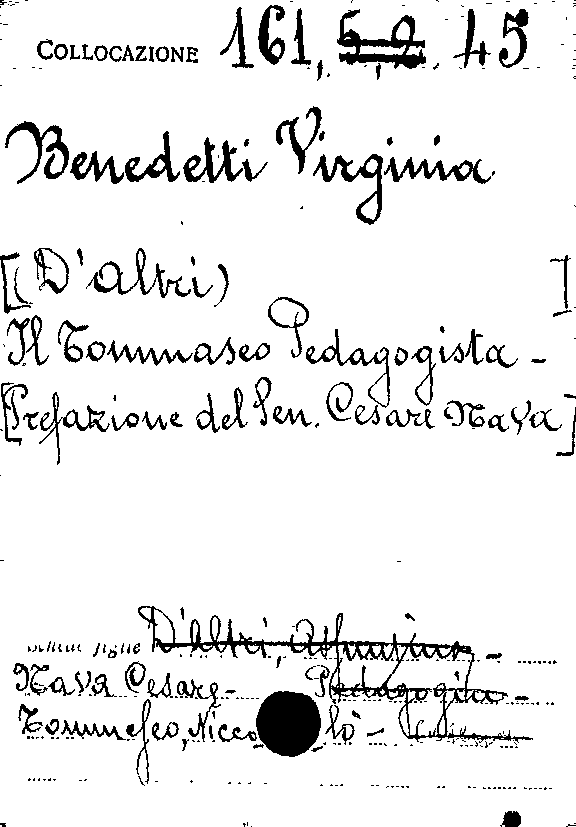 COLLOCAZIONE 161, 5, 2. 45
Benedetti Virginia
[(D'Altri) ]
Il Tommaseo Pedagogista -
[Prefazione del Sen. Cesare Nava]
D'Altri, -
Nava Cesare - Pedagogia -
Tommaseo, Niccolò -